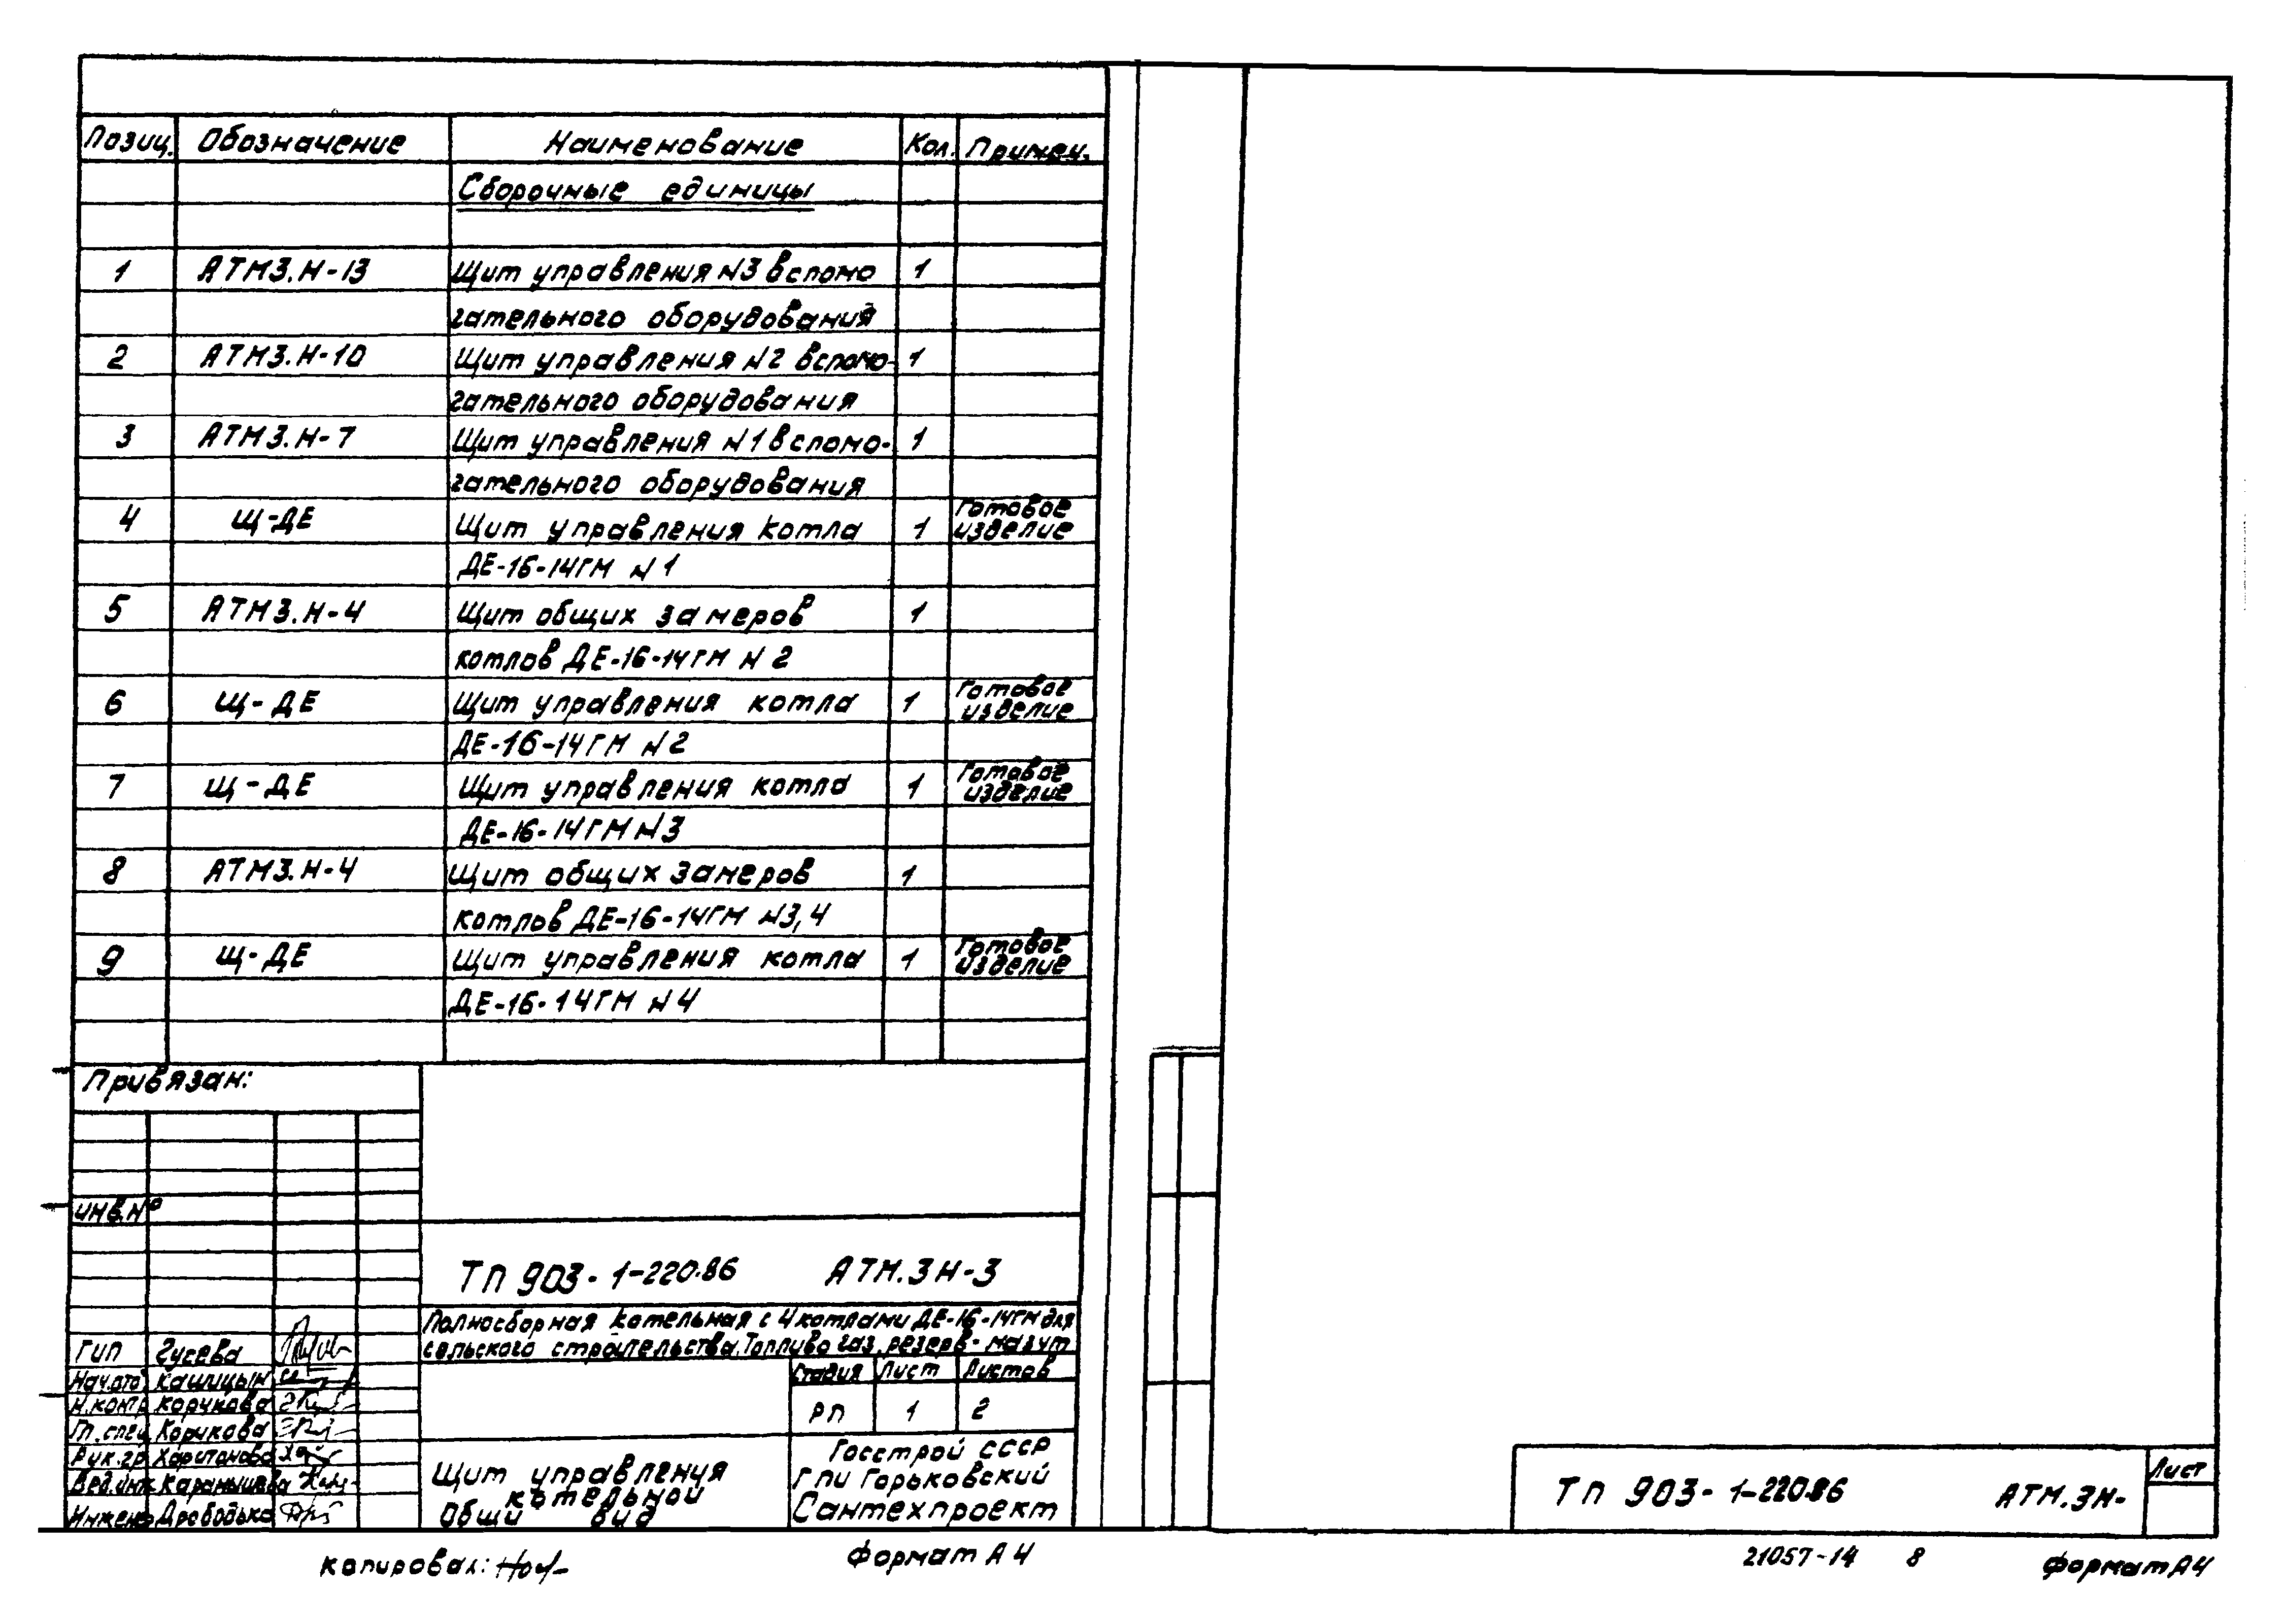 Позиц. Обозначение Наименование Кол. Примеч.
Сборочные единицы
1 АТМ3.Н-13 Щит управления N3 вспомо 1
гательного оборудования
2 АТМ3.Н-10 Щит управления N2 вспомо- 1
гательного оборудования
3 АТМ3.Н-7 Щит управления N1 вспомо- 1
гательного оборудования
4 Щ-ДЕ Щит управления котла 1 Готовое изделие
ДЕ-16-14ГМ N1
5 АТМ3.Н-4 Щит общих замеров 1
котлов ДЕ-16-14ГМ N2
6 Щ-ДЕ Щит управления котла 1 Готовое изделие
ДЕ-16-14ГМ N2
7 Щ-ДЕ Щит управления котла 1 Готовое изделие
ДЕ-16-14ГМ N3
8 АТМ3.Н-4 Щит общих замеров 1
котлов ДЕ-16-14ГМ N3,4
9 Щ-ДЕ Щит управления котла 1 Готовое изделие
ДЕ-16-14ГМ N4
Привязан:
инв.Nº
ТП 903-1-220.86 АТМ.3Н-3
Полносборная котельная с 4 котлами ДЕ-16-14ГМ для
сельского строительства. Топливо газ, резерв- мазут
ГИП Гусева
Нач.отд Кашицын
Стадия Лист Листов
Н.контр Корчкова
РП 1 2
Гл.спец Корчкова
Рук.гр Харитонова
Вед.инж Карамышева
Инжен Дрободько
Щит управления
котельной
Общи вид
Госстрой СССР
ГПИ Горьковский
Сантехпроект
копировал:
Формат А4
ТП 903-1-220.86 АТМ.3Н-
Лист
21057-14 8 Формат А4